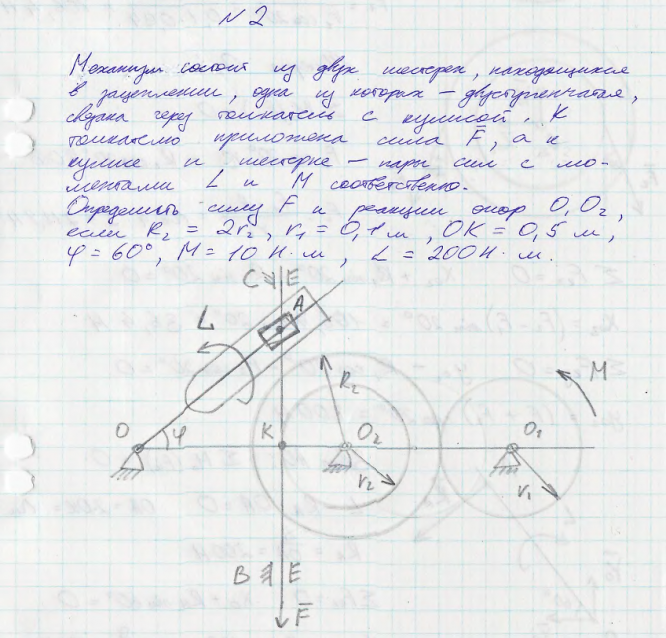 №2
Механизм состоит из двух шестерен, находящихся
в зацеплении, одна из которых – двуступенчатая,
связана через толкатель с кулисой. К
толкателю приложена сила F̅, а к
кулисе и шестерне – пары сил с мо-
ментами L и M соответственно.
Определить силу F и реакции опор O, O₂,
если R₂ = 2r₂, r₁ = 0,1 м, OK = 0,5 м,
φ = 60°, M = 10 Н·м, L = 200 Н·м.
C E
A
L
R₂
M
O φ K O₂ O₁
r₂ r₁
B E
F̅